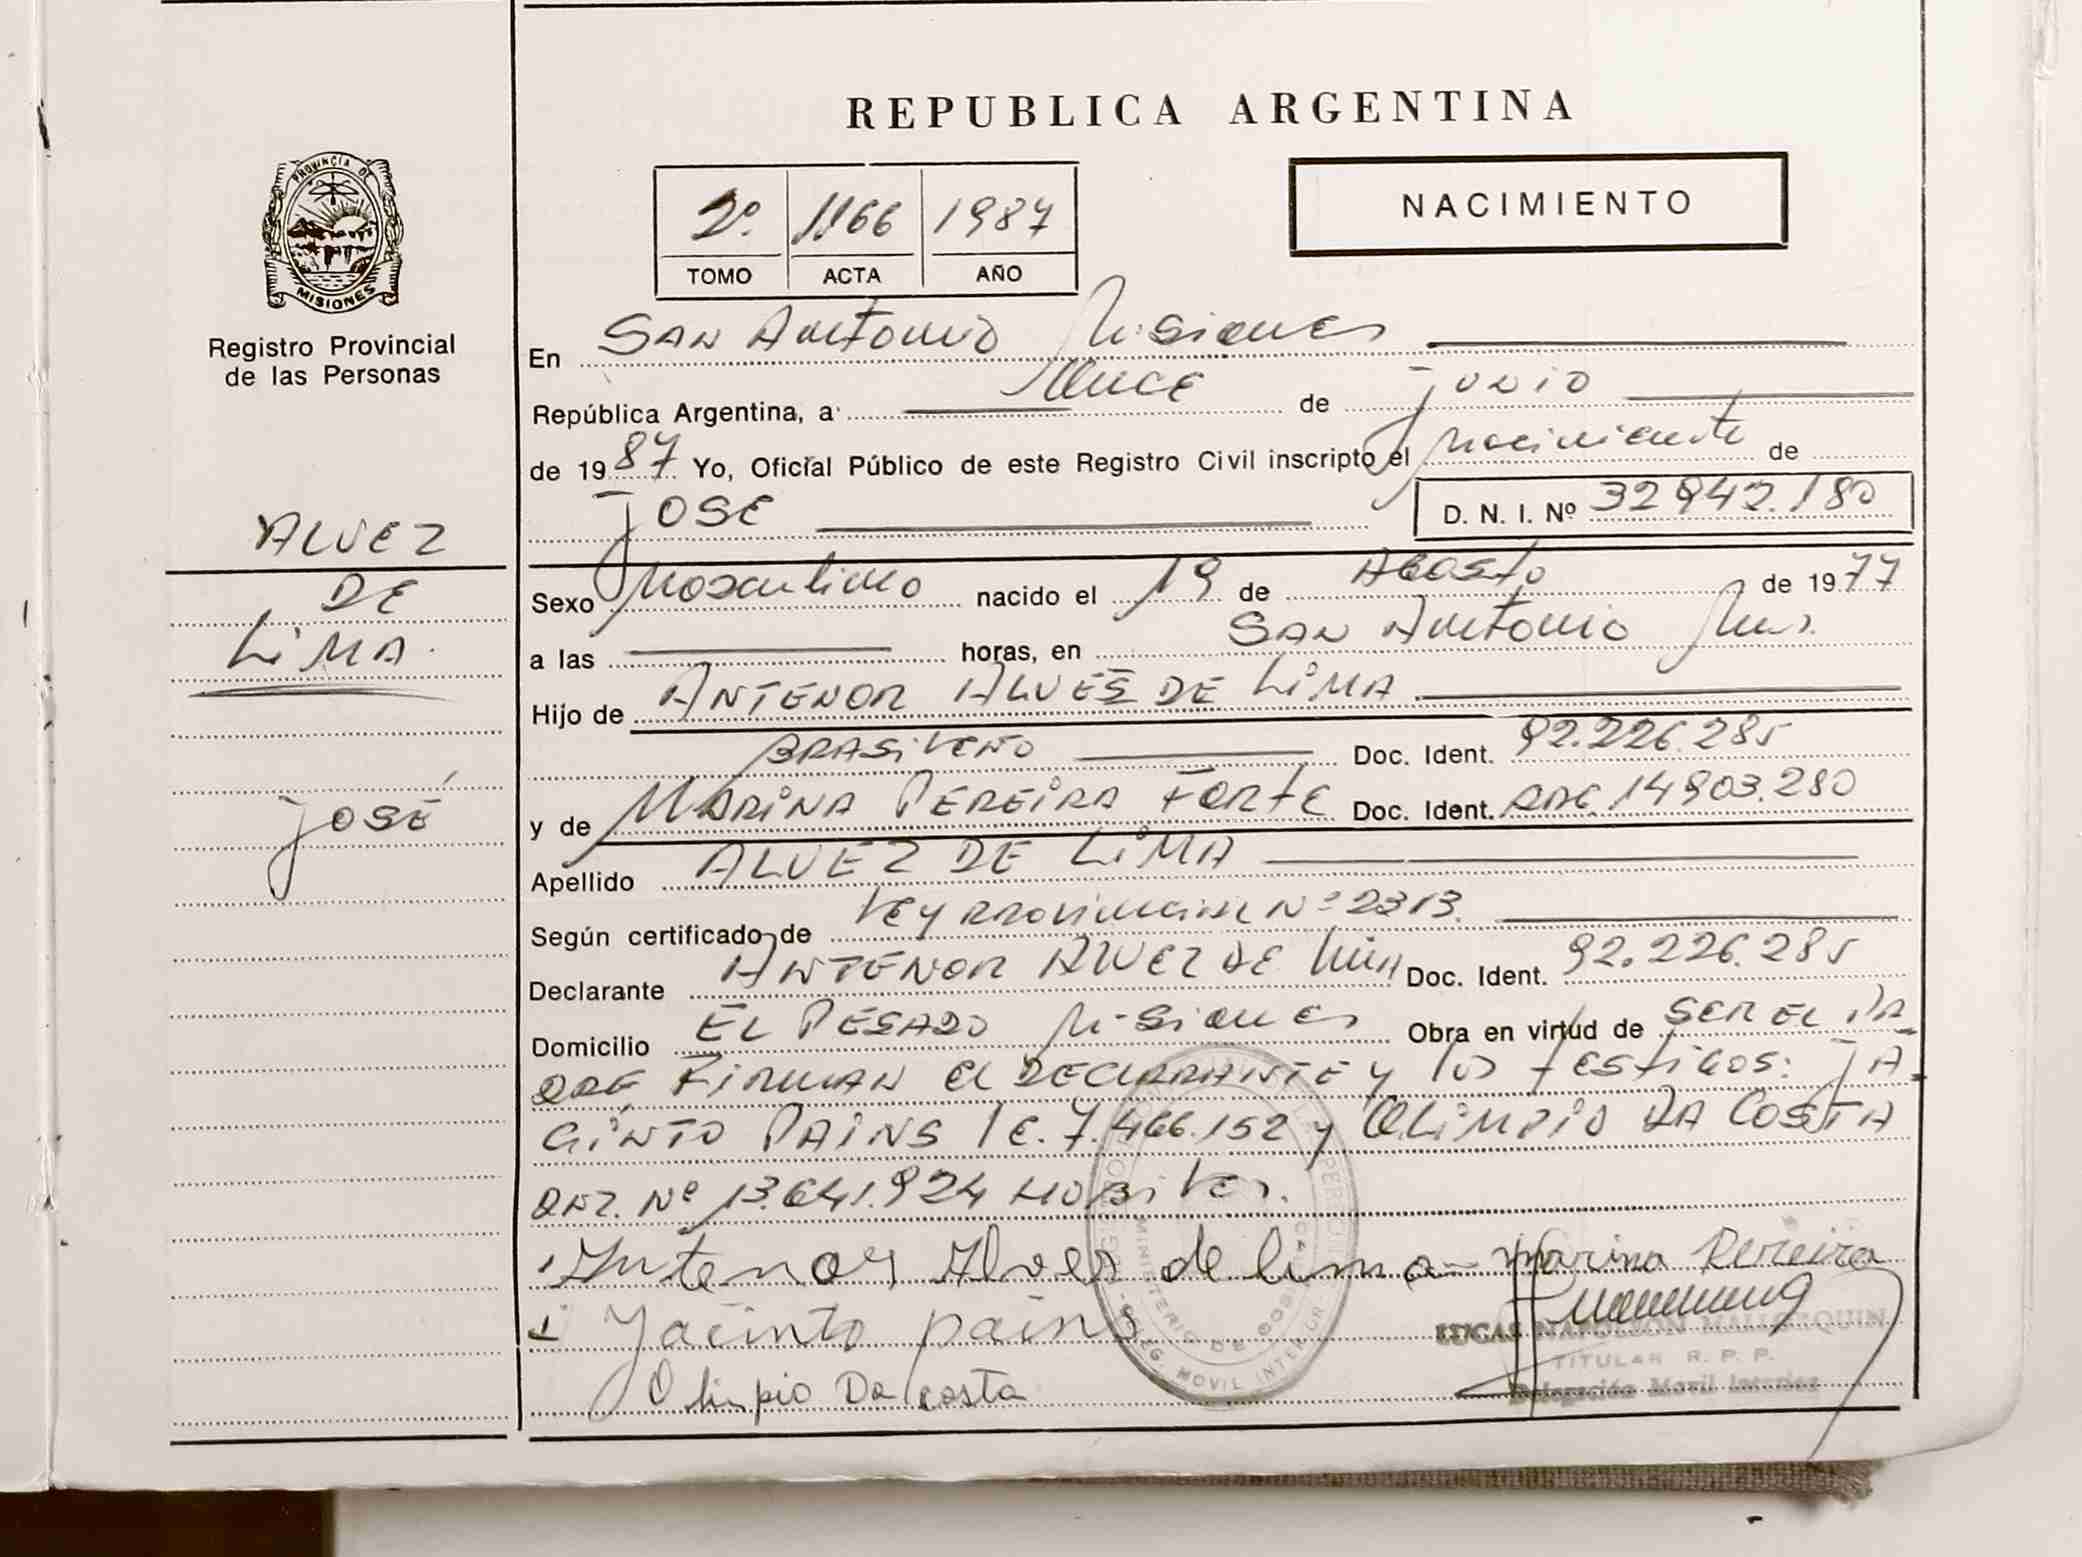 REPUBLICA ARGENTINA
NACIMIENTO
2º. 1166 1987
TOMO ACTA AÑO
PROVINCIA DE
MISIONES
Registro Provincial
de las Personas
ALVEZ
DE
LIMA.
JOSÉ
En SAN ANTONIO Misiones
República Argentina, a once de JUNIO
de 1987 Yo, Oficial Público de este Registro Civil inscripto el nacimiento de
JOSE D. N. I. Nº 32942.180
Sexo Masculino nacido el 19 de AGOSTO de 1977
a las horas, en SAN ANTONIO Mnes.
Hijo de ANTENOR ALVES DE LIMA
BRASILEÑO Doc. Ident. 92.226.285
y de MARINA PEREIRA FORTE Doc. Ident. 14903.280
Apellido ALVEZ DE LIMA
Según certificado de LEY PROVINCIAL Nº 2313.
Declarante ANTENOR ALVEZ DE LIMA Doc. Ident. 92.226.285
Domicilio EL PESADO Misiones Obra en virtud de SER EL PA
DRE FIRMAN el DECLARANTE y los testigos: JA
CINTO PAINS 7.466.152 y OLIMPIO DA COSTA
Nº 13.641.924 HÁBILES.
Antenor Alves de lima - Marina Pereira
Jacinto pains
Olimpio Da Costa
MINISTERIO DE GOBIERNO
MOVIL INTERIOR
LUCAS NAPOLEON MALLORQUIN
TITULAR R. P. P.
Delegación Movil Interior